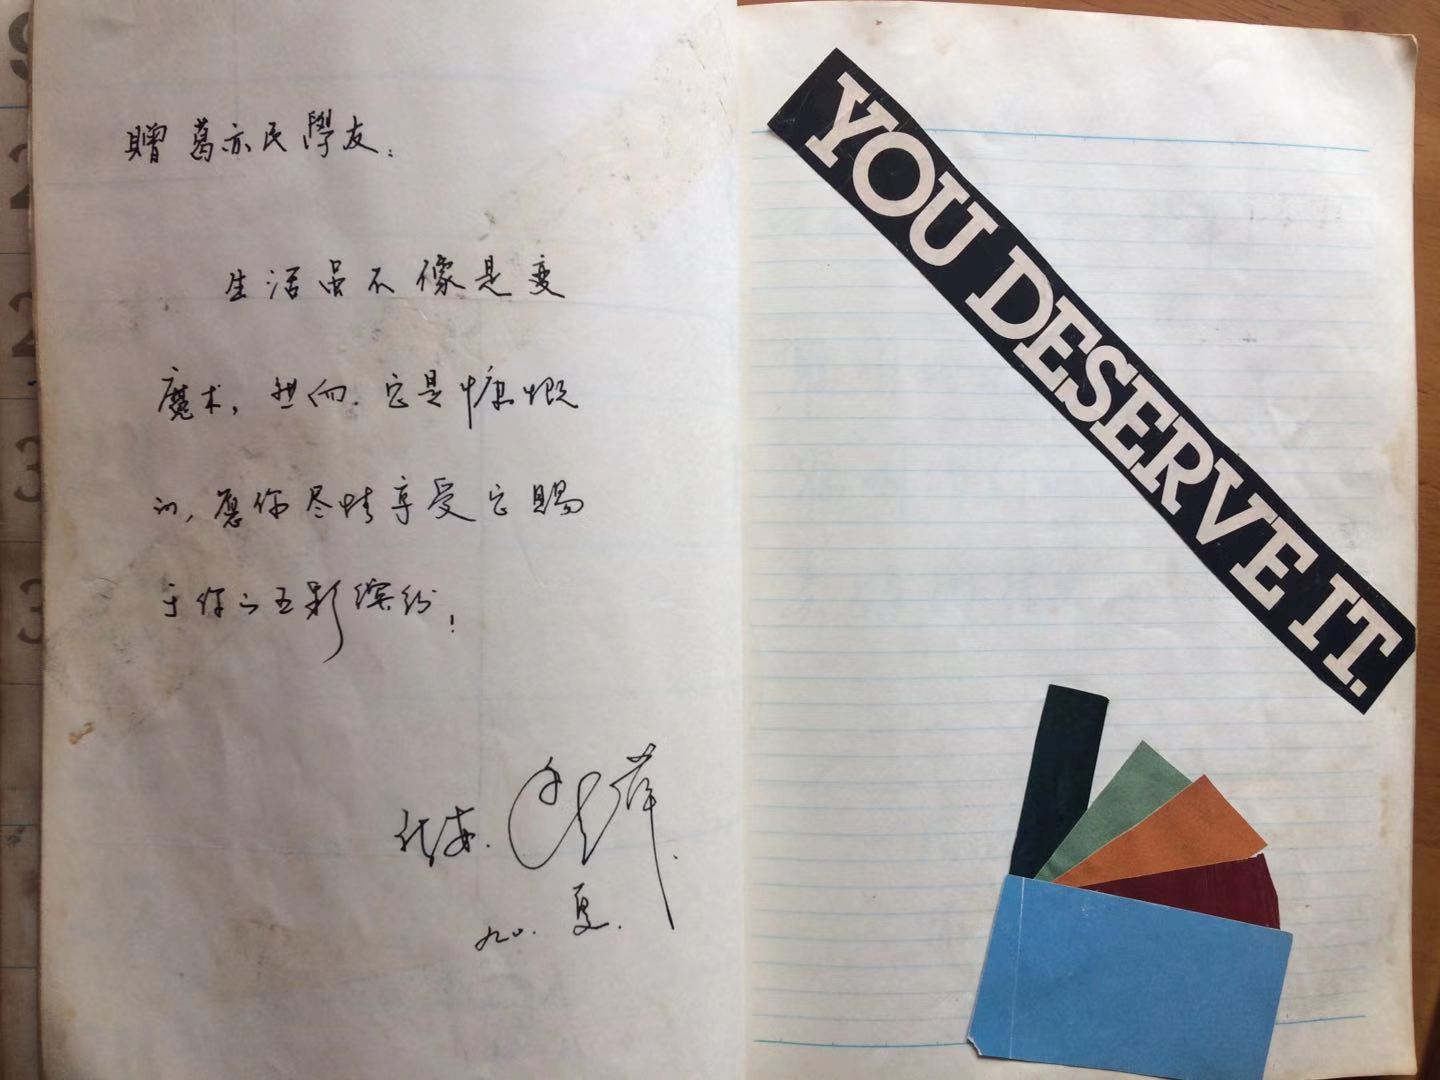 贈 葛亦民學友：
生活虽不像是变
魔术，然而，它是慷慨
的，愿你尽情享受它赐
于你之五彩缤纷！
九〇.夏.
YOU DESERVE IT.